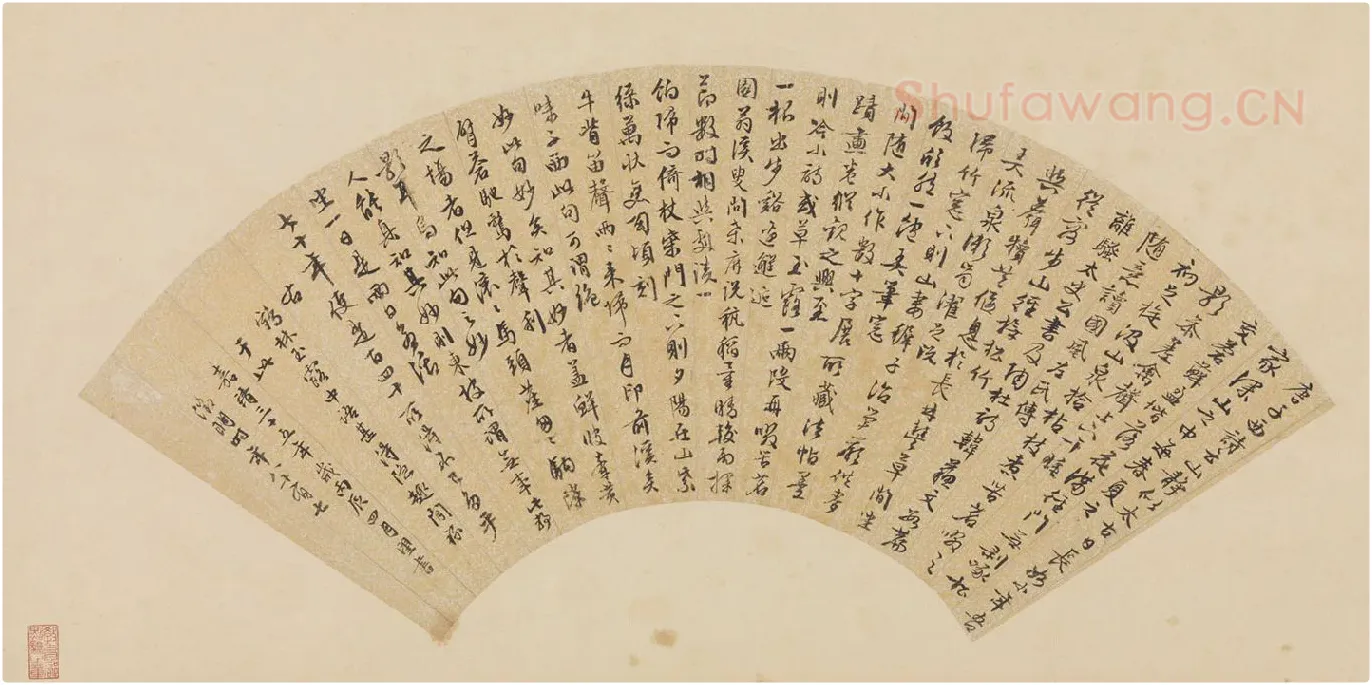 唐子西詩云山靜似太古日長如小年吾
家深山之中每春夏之
交蒼蘚盈堦落花滿徑門無剝啄松
影參差禽聲上下午睡
初足旋汲山泉拾松枝煮苦茗啜之
隨意讀周易國風左氏傳
離騷太史公書及陶杜詩韓蘇文數篇
從容步山徑撫松竹
與麛犢共偃息於長林豐草間坐
弄流泉漱齒濯足
歸竹窗下則山妻稚子治笋蕨供麥
飯欣然一飽弄筆窗
間隨大小作數十字展所藏法帖墨
蹟畫卷縱觀之興至
則吟小詩或草玉露一兩段再啜苦茗
一杯出步谿邊邂逅
園翁溪叟問桑麻說秔稻量晴較雨探
節數時相與劇談一
餉歸而倚杖柴門之下則夕陽在山紫
綠萬狀變幻頃刻
牛背笛聲兩兩來歸而月印前溪矣
味子西此句可謂絕
妙此句妙矣知其妙者蓋鮮彼牽黃
臂蒼馳騖於聲利
之場者但見滾滾馬頭塵匆匆駒隙
影耳烏知此句之妙
人能身知其妙則東坡所謂無事此靜
坐一日是兩日若活
七十年便是百四十所得不已多乎
右鶴林玉露中語甚得隱趣閒
嘉靖三十五年歲丙辰四月既
徵明時年八十有七
Shufawang.CN